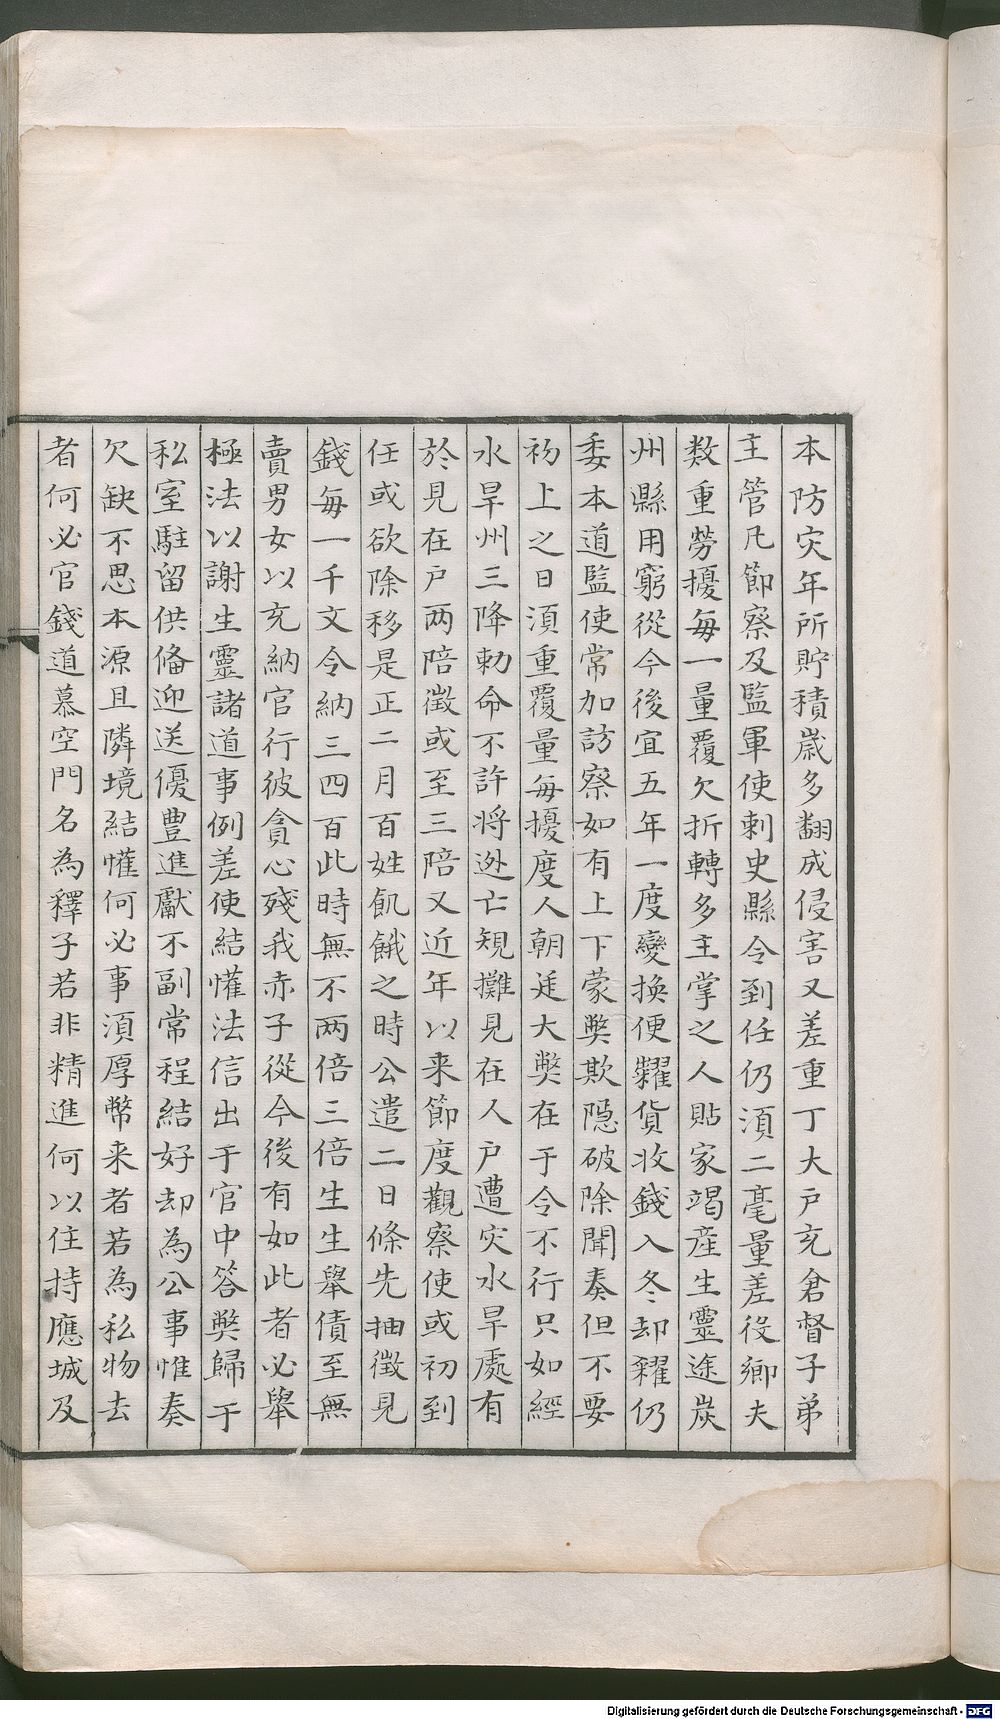 本防灾年所貯積歳多翻成侵害又差重丁大戸充倉督子弟
主管凡節察及監軍使刺史縣令到任仍湏二毫量差役鄉夫
数重勞擾毎一量覆欠折轉多主掌之人貼家竭産生靈途炭
州縣用窮從今後宜五年一度變換便糶貨收錢入冬却糴仍
委本道監使常加訪察如有上下蒙獘欺隐破除聞奏但不要
初上之日湏重覆量毎擾度人朝廷大獘在于令不行只如經
水旱州三降勅命不許将迯亡䂓攤見在人戸遭灾水旱處有
於見在戸两陪徴或至三陪又近年以来節度觀察使或初到
任或欲除移是正二月百姓飢餓之時公遣二日條先抽徴見
錢毎一千文令納三四百此時無不两倍三倍生生舉債至無
賣男女以充納官行彼貪心殘我赤子從今後有如此者必舉
極法以謝生靈諸道事例差使結懽法信出于官中答獘歸于
私室駐留供俻迎送優豊進獻不副常程結好却為公事惟奏
欠缺不思本源且隣境結懽何必事湏厚幣来者若為私物去
者何必官錢道慕空門名為釋子若非精進何以住持應城及
Digitalisierung gefördert durch die Deutsche Forschungsgemeinschaft - DFG